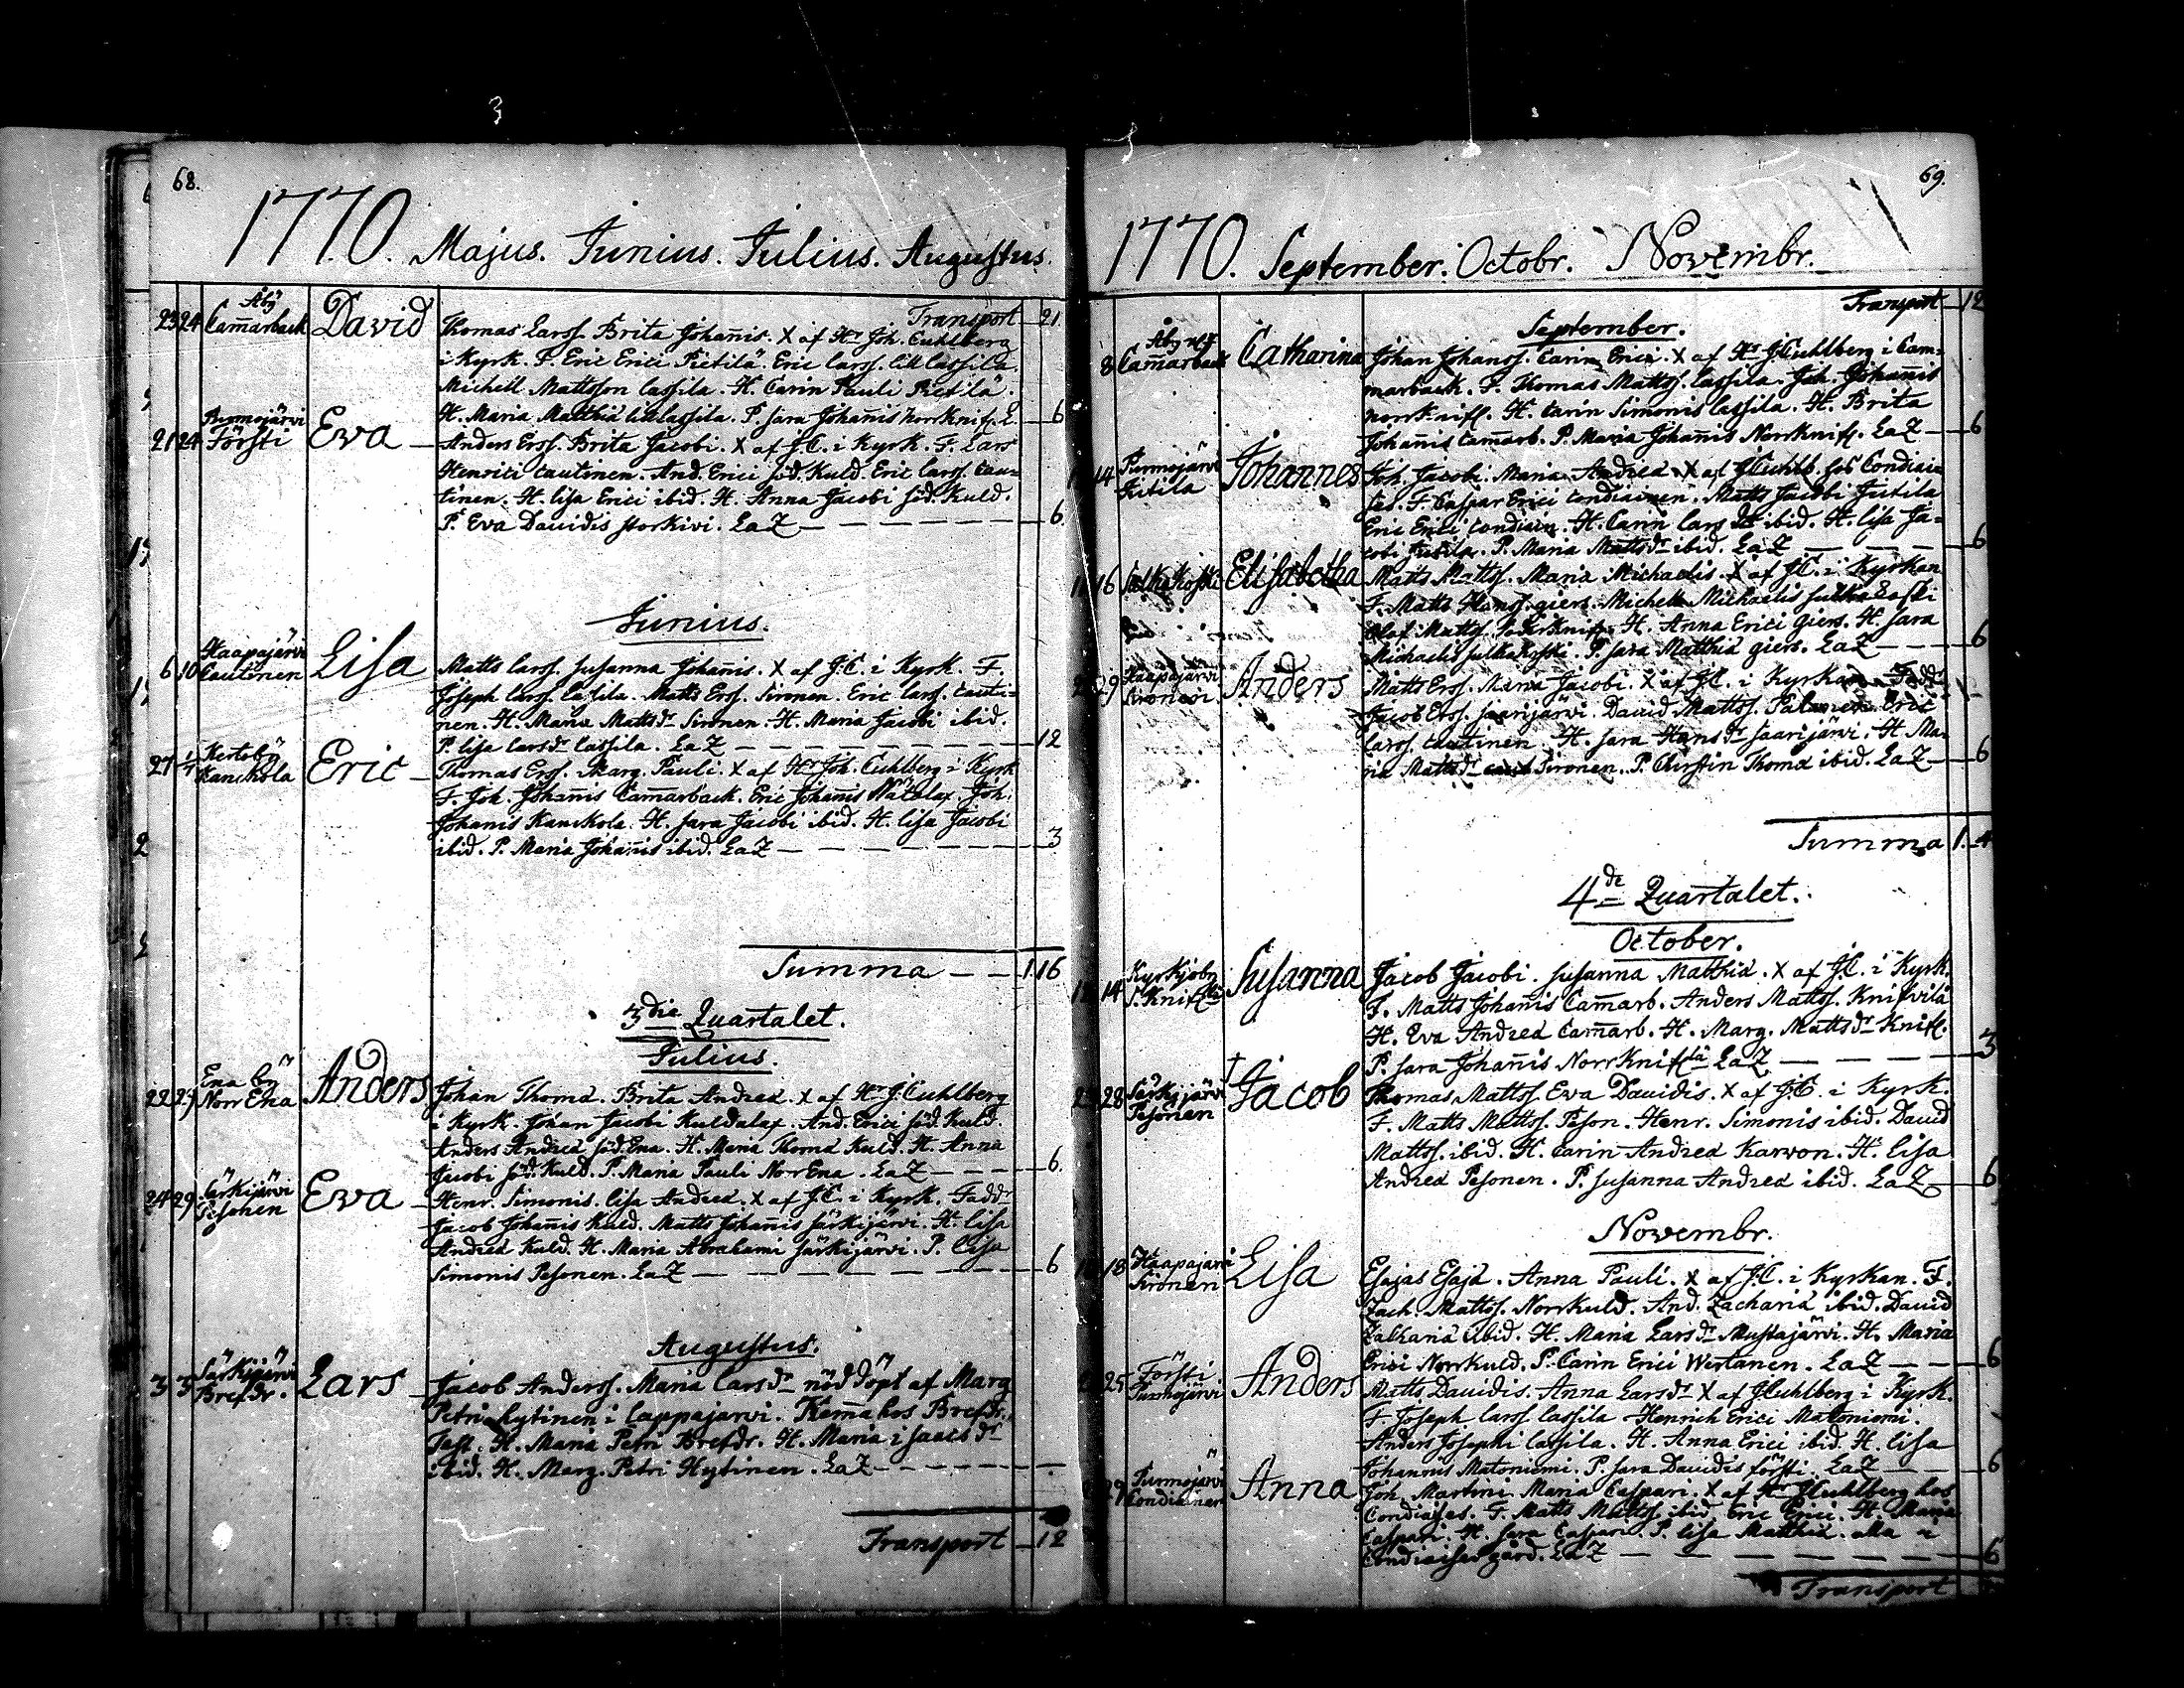 68.
1770. Majus. Junius. Julius. Augustus.
Transport 21
23 24 Åbÿ Cam̄arback David Thomas Larss. Brita Johan̄is. X af Hr Joh. Cuhlberg
i Kyrk. F. Eric Erici Pietilä. Eric Larss. lill Lassila.
Michell Mattsson Lassila. H. Carin Pauli Pietilä
H. Maria Matthiæ lill Lassila. P. Sara Johan̄is Norrknif. L. 6
21 24 Purmojärvi Försti Eva Anders Erss. Brita Jacobi. X af J.C. i Kyrk. F. Lars
Henrici Cautinen. And. Erici Söd. Kuld. Eric Larss. Cau-
tinen. H. Lisa Erici ibid. H. Anna Jacobi Söd. Kuld.
P. Eva Davidis Storkivi. LaZ 6
Junius.
6 10 Haapajärvi Cautinen Lisa Matts Larss. Susanna Johanis. X af J.C. i Kyrk. F.
Joseph Larss. Lassila. Matts Erss. Sironen. Eric Larss. Cauti-
nen. H. Maria Mattsdr Sironen. H. Maria Jacobi ibid.
P. Lisa Larsdr Lassila. LaZ 12
27 1/7 Kertobÿ Kanckola Eric Thomas Erss. Marg. Pauli. X af Hr Joh. Cuhlberg i Kyrk
F. Joh. Johan̄is Cam̄arback. Eric Johanis Måtalax Joh.
Johanis Kanckola. H. Sara Jacobi ibid. H. Lisa Jacobi
ibid. P. Maria Johan̄is ibid. LaZ 3
Summa 1.16
3die Quartalet.
Julius.
22 29 Ena bÿ Norr Ena Anders Johan Thomæ. Brita Andreæ. X af Hr J. Cuhlberg
i Kyrk. Johan Jacobi Kuldalax. And. Erici Söd. Kuld.
Anders Andreæ Söd. Ena. H. Maria Thomæ Kuld. H. Anna
Jacobi Söd. Kuld. P. Maria Pauli Norr Ena. LaZ 6
24 29 Särkijärvi Pesonen Eva Henr. Simonis. Lisa Andreæ. X af J.C. i Kyrk. Faddr
Jacob Johan̄is Kuld. Matts Johan̄is Särkijärvi. H. Lisa
Andreæ Kuld. H. Maria Abrahami Särkijärvi. P. Lisa
Simonis Pesonen. LaZ 6
Augustus.
3 3 Särkijärvi Brefdr. Lars Jacob Anderss. Maria Larsdr nöddöpt af Marg
Petri Hytinen i Lappajärvi. Kem̄a hos Brefdr.
Test. H. Maria Petri Brefdr. H. Maria Isaacsdr
ibid. H. Marg. Petri Hytinen. LaZ
Transport 12
69.
1770. September. Octobr. Novembr.
Transport 12
September.
8 Åby Cam̄arback Catharina Johan Johanss. Carin Erici. X af Hr J. Cuhlberg i Cam-
marback. F. Thomas Mattss. Lassila. Joh. Johan̄is
Norrknif. H. Carin Simonis Lassila. H. Brita
Johan̄is Cam̄arb. P. Maria Johan̄is Norrknif. LaZ 6
14 Purmojärvi Jutila Johannes Joh. Jacobi. Maria Andreæ X af J. Cuhlb. hos Condiai-
ses. F. Caspar Erici Condiainen. Matts Jacobi Jutila
Eric Erici Condiain. H. Carin Larsdr ibid. H. Lisa Ja-
cobi Jutila. P. Maria Mattsdr ibid. LaZ 6
16 Sulkakoski Elisabetha Matts Mattss. Maria Michaelis. X af J.C. i Kyrkan
F. Matts Hanss. Giers. Michell Michaelis Sulkakoski
Olof Mattss. Söderknif. H. Anna Erici Giers. H. Sara
Michaelis Sulkakoski. P. Sara Matthiæ Giers. LaZ 6
29 Haapajärvi Sironen Anders Matts Erss. Maria Jacobi. X af J.C. i Kyrkan. Faddr
Jacob Erss. Saarijärvi. David Mattss. Palmen. Eric
Larss. Cautinen. H. Sara Hansdr Saarijärvi. H. Ma-
ria Mattsdr Sironen. P. Christin Thomæ ibid. LaZ 6
Summa 1.4
4de Quartalet.
October.
14 Kyrkjobÿ S. Knifvilä Susanna Jacob Jacobi. Susanna Matthiæ. X af J.C. i Kyrk.
F. Matts Johan̄is Cam̄arb. Anders Mattss. Knifvilä
H. Eva Andreæ Cam̄arb. H. Marg. Mattsdr Knif.
P. Sara Johan̄is NorrKniflä LaZ 3
28 Särkijärvi Pesonen † Jacob Thomas Mattss. Eva Davidis. X af J.C. i Kyrk.
F. Matts Mattss. Peson. Henr. Simonis ibid. David
Mattss. ibid. H. Carin Andreæ Karvon. H. Lisa
Andreæ Pesonen. P. Susanna Andreæ ibid. LaZ 6
Novembr.
18 Haapajärvi Sironen Lisa Esajas Esajæ. Anna Pauli. X af J.C. i Kyrkan. F.
Zach. Mattss. Norrkuld. And. Zachariæ ibid. David
Zachariæ ibid. H. Maria Larsdr Mustajärvi. H. Maria
Erici Norrkuld. P. Carin Erici Wertanen. LaZ 6
25 Försti Purmojärvi Anders Matts Davidis. Anna Larsdr X af J. Cuhlberg i Kyrk.
F. Joseph Larss. Lassila Henrich Erici Matoniemi.
Anders Josephi Lassila. H. Anna Erici ibid. H. Lisa
Johannis Matoniemi. P. Sara Davidis Försti. LaZ 6
29 Purmojärvi Condiainen Anna Joh. Martini. Maria Caspari. X af Hr J. Cuhlberg hos
Condiaises. F. Matts Mattss. ibid. Eric Erici. H. Maria
Caspari. H. Sara Caspari. P. Lisa Matthiæ. alla i
Condiaises gård. LaZ 6
Transport